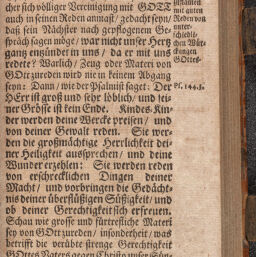 cher sich völliger Vereinigung mit GOTT
auch in seinen Reden anmast/ gedacht seyn/
daß sein Nächster nach gepflogenem Ge-
spräch sagen möge/ war nicht unser Hertz
gantz entzündet in uns/ da er mit uns
redete? Warlich/ Zeug oder Materi von
GOtt zureden wird nie in keinem Abgang
seyn: Dann/ wie der Psalmist saget: Der
HErr ist groß und sehr löblich/ und sei-
ner Grösse ist kein Ende. Kindes-Kin-
der werden deine Wercke preisen/ und
von deiner Gewalt reden. Sie wer-
den die großmächtige Herrlichkeit dei-
ner Heiligkeit aussprechen/ und deine
Wunder erzehlen: Sie werden reden
von erschrecklichen Dingen deiner
Macht/ und vorbringen die Gedächt-
nis deiner überflüßigen Süßigkeit/ und
ob deiner Gerechtigkeit sich erfreuen.
Schau wie grosse und fürtrefliche Materi
sey von GOtt zureden/ insonderheit/ was
betrifft die verübte strenge Gerechtigkeit
GOttes Vaters gegen Christo unser Sün-
mit guten
Reden von
unter-
schiedli-
chen Wür-
ckungen
GOttes.
Ps. 144.3.